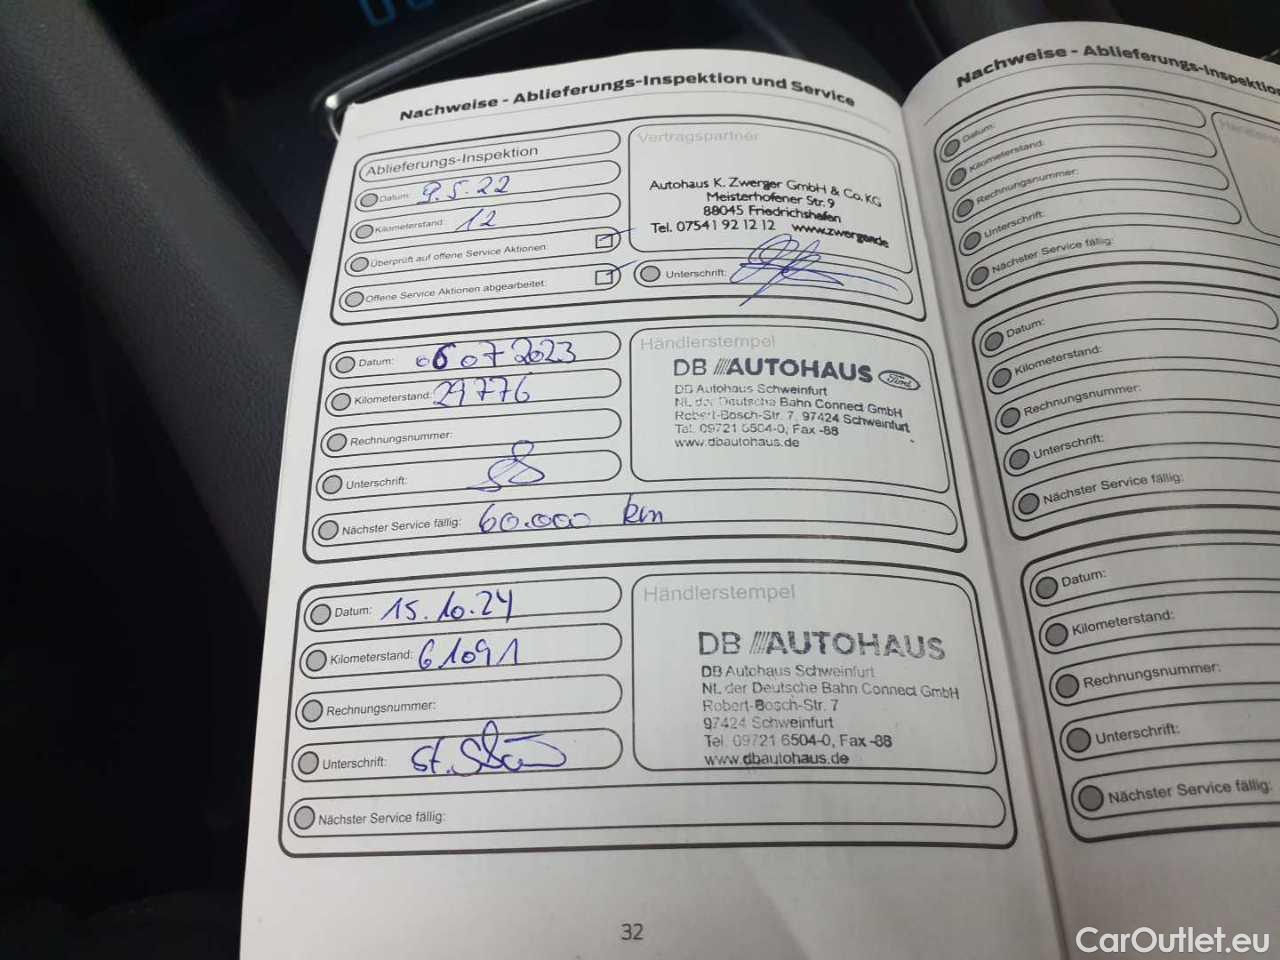 Nachweise - Ablieferungs-Inspektion und Service
Ablieferungs-Inspektion
Datum: 9.5.22
Kilometerstand: 12
Überprüft auf offene Service Aktionen:
Offene Service Aktionen abgearbeitet:
Vertragspartner
Autohaus K. Zwerger GmbH & Co. KG
Meisterhofener Str. 9
88045 Friedrichshafen
Tel. 07541 92 12 12 www.zwerger.de
Unterschrift:
Datum: 06 07 2023
Kilometerstand: 29776
Rechnungsnummer:
Unterschrift:
Nächster Service fällig: 60.000 km
Händlerstempel
DB AUTOHAUS Ford
DB Autohaus Schweinfurt
NL der Deutsche Bahn Connect GmbH
Robert-Bosch-Str. 7, 97424 Schweinfurt
Tel. 09721 6504-0, Fax -88
www.dbautohaus.de
Datum: 15.10.24
Kilometerstand: 61091
Rechnungsnummer:
Unterschrift:
Nächster Service fällig:
Händlerstempel
DB AUTOHAUS
DB Autohaus Schweinfurt
NL der Deutsche Bahn Connect GmbH
Robert-Bosch-Str. 7
97424 Schweinfurt
Tel. 09721 6504-0, Fax -88
www.dbautohaus.de
32
Nachweise - Ablieferungs-Inspektion
Datum:
Kilometerstand:
Rechnungsnummer:
Unterschrift:
Nächster Service fällig:
Datum:
Kilometerstand:
Rechnungsnummer:
Unterschrift:
Nächster Service fällig:
Datum:
Kilometerstand:
Rechnungsnummer:
Unterschrift:
Nächster Service fällig:
CarOutlet.eu